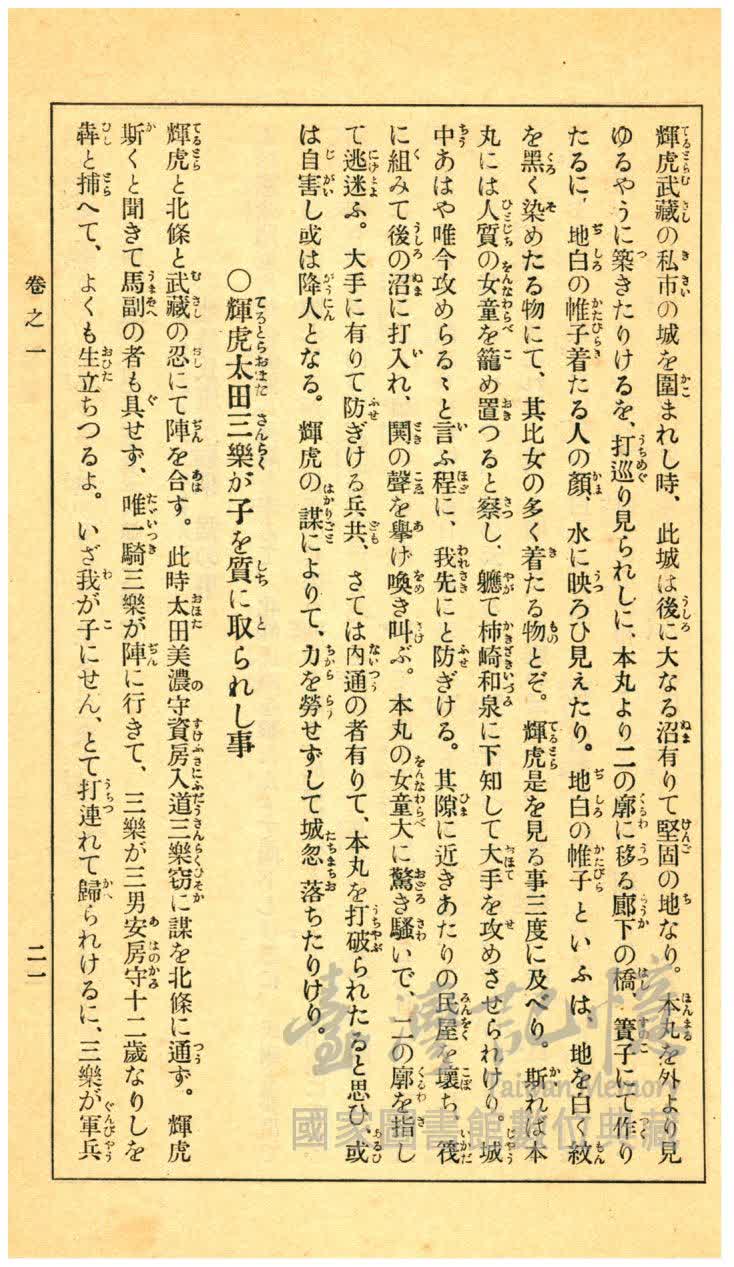 輝虎武藏の私市の城を圍まれし時、此城は後に大なる沼有りて堅固の地なり。本丸を外より見
ゆるやうに築きたりけるを、打巡り見られしに、本丸より二の廓に移る廊下の橋、簀子にて作り
たるに、地白の帷子着たる人の顏、水に映ろひ見えたり。地白の帷子といふは、地を白く紋
を黑く染めたる物にて、其比女の多く着たる物とぞ。輝虎是を見る事三度に及べり。斯れば本
丸には人質の女童を籠め置つると察し、軈て柿崎和泉に下知して大手を攻めさせられけり。城
中あはや唯今攻めらるゝと言ふ程に、我先にと防ぎける。其隙に近きあたりの民屋を壞ち、筏
に組みて後の沼に打入れ、鬨の聲を擧げ喚き叫ぶ。本丸の女童大に驚き騷いで、二の廓を指し
て逃迷ふ。大手に有りて防ぎける兵共、さては內通の者有りて、本丸を打破られたると思ひ、或
は自害し或は降人となる。輝虎の謀によりて、力を勞せずして城忽落ちたりけり。
〇輝虎太田三樂が子を質に取られし事
輝虎と北條と武藏の忍にて陣を合す。此時太田美濃守資房入道三樂窃に謀を北條に通ず。輝虎
斯くと聞きて馬副の者も具せず、唯一騎三樂が陣に行きて、三樂が三男安房守十二歲なりしを
犇と捕へて、よくも生立ちつるよ。いざ我が子にせん、とて打連れて歸られけるに、三樂が軍兵
卷之一
二一
臺灣記憶
Taiwan Memory
國家圖書館數位典藏